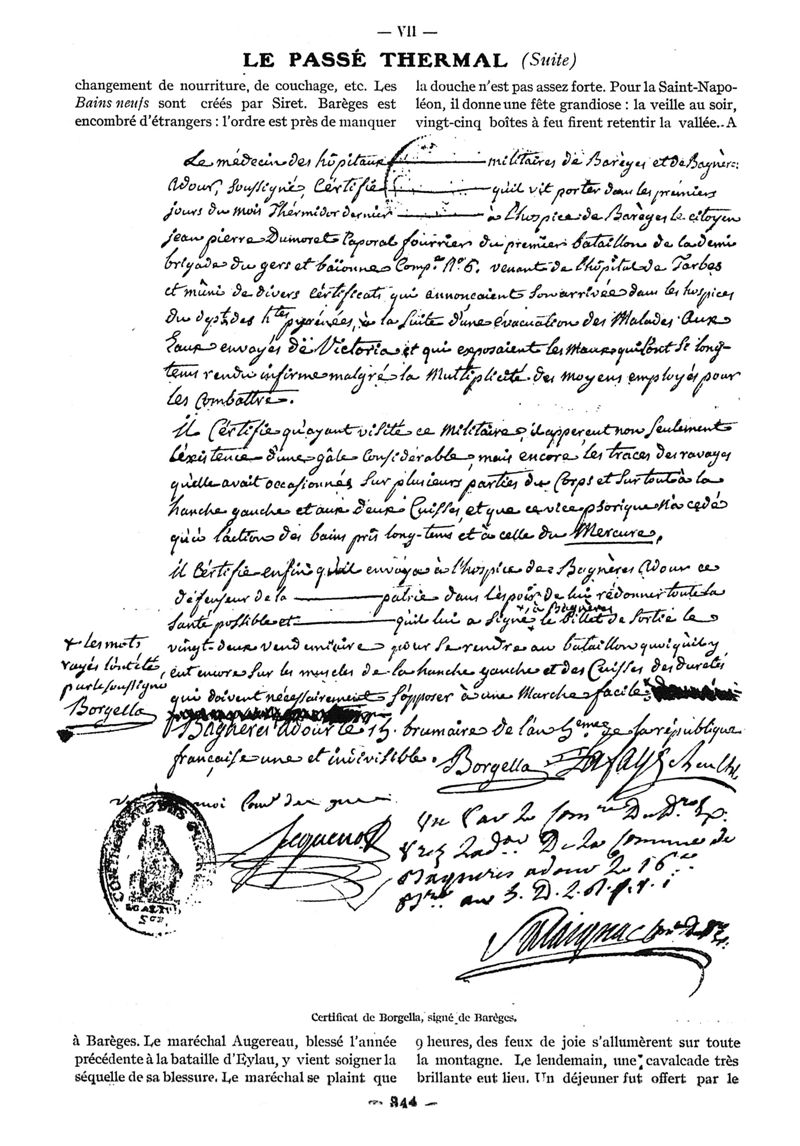 — VII —
LE PASSÉ THERMAL (Suite)
changement de nourriture, de couchage, etc. Les
Bains neufs sont créés par Siret. Barèges est
encombré d'étrangers : l'ordre est près de manquer
la douche n'est pas assez forte. Pour la Saint-Napo-
léon, il donne une fête grandiose : la veille au soir,
vingt-cinq boîtes à feu firent retentir la vallée.. A
Le médecin des hôpitaux militaires de Barèges et de Bagnères
Adour, soussigné Certifie qu'il vit porter dans les premiers
jours du mois Thermidor dernier à l'hospice de Barèges le citoyen
jean pierre Dumoret Caporal fourrier du premier bataillon de la demi
brigade du gers et baïonne Comp.e N.o 6. venant de l'hôpital de Tarbes
et muni de divers certificats qui annonçaient son arrivée dans les hospices
du dept. des h.tes pyrénées, à la suite d'une évacuation des Malades Aux
Eaux envoyés de Victoria et qui exposaient les Maux qui l'ont si long-
tems rendu infirme malgré la Multiplicité des moyens employés pour
les Combattre.
Il Certifie qu'ayant visité ce Militaire, il apperçut non seulement
l'existence d'une gâle Considérable, mais encore les traces des ravages
qu'elle avait occasionnés sur plusieurs parties du Corps et sur tout à la
hanche gauche et aux deux Cuisses, et que ce vice psorique n'a cédé
qu'à l'action des bains pris long-tems et à celle du Mercure.
il Certifie enfin qu'il envoya à l'hospice des Bagnères Adour ce
défenseur de la patrie dans l'espoir de lui rédonner toute la
santé possible et qu'il lui a signé + à Bagnères le Billet de Sortie le
vingt-deux vendemiaire pour se rendre au bataillon quoiqu'il y
eut encore sur les muscles de la hanche gauche et des Cuisses des duretés
qui doivent nécessairement s'opposer à une Marche facile
+ les mots
rayés l'ont été
par le soussigné
Borgella
Bagnères Adour le 15 brumaire de l'an 5eme de la république
française une et indivisible. Borgella
moi
De La Commune de
Bagneres adour Le 16
EGALITE
Certificat de Borgella, signé de Barèges.
à Barèges. Le maréchal Augereau, blessé l'année
précédente à la bataille d'Eylau, y vient soigner la
séquelle de sa blessure. Le maréchal se plaint que
9 heures, des feux de joie s'allumèrent sur toute
la montagne. Le lendemain, une cavalcade très
brillante eut lieu. Un déjeuner fut offert par le
— 344 —